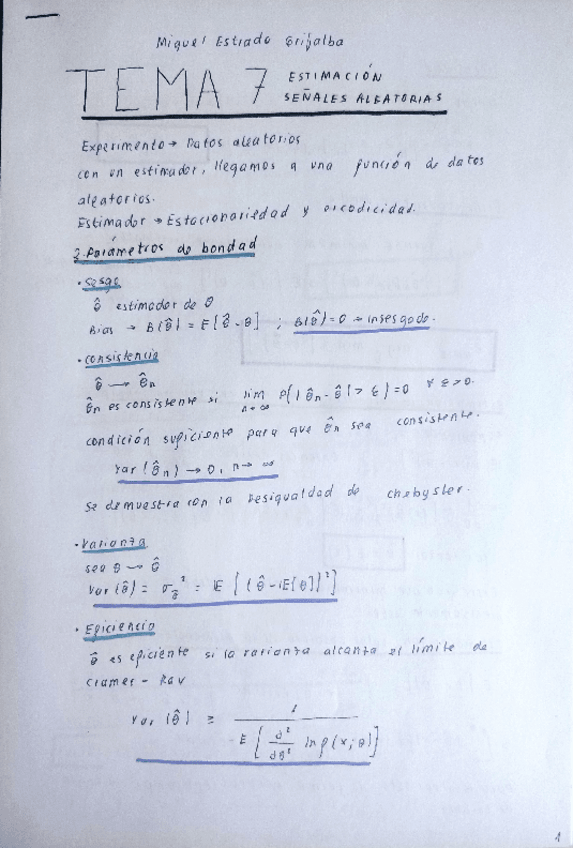 Miguel Estrada Grijalba
TEMA 7 ESTIMACIÓN
SEÑALES ALEATORIAS
Experimento → Datos aleatorios
con un estimador, llegamos a una función de datos
aleatorios.
Estimador → Estacionariedad y ergodicidad.
2. Parámetros de bondad
· Sesgo
θ̂ estimador de θ
Bias → B(θ̂) = E[θ̂ - θ] ; B(θ̂) = 0 → insesgado.
· Consistencia
θ̂ → θ̂n
θ̂n es consistente si lim n→∞ P(|θ̂n - θ̂| > ε) = 0 ∀ ε > 0.
condición suficiente para que θ̂n sea consistente.
Var(θ̂n) → 0, n → ∞
Se demuestra con la Desigualdad de Chebyster.
· Varianza
sea θ → θ̂
Var(θ̂) = σ_θ̂² = E[(θ̂ - E[θ])²]
· Eficiencia
θ̂ es eficiente si la varianza alcanza el límite de
Cramer - Rav
Var(θ̂) ≥ 1 / -E[d²/dθ² ln p(x;θ)]
1